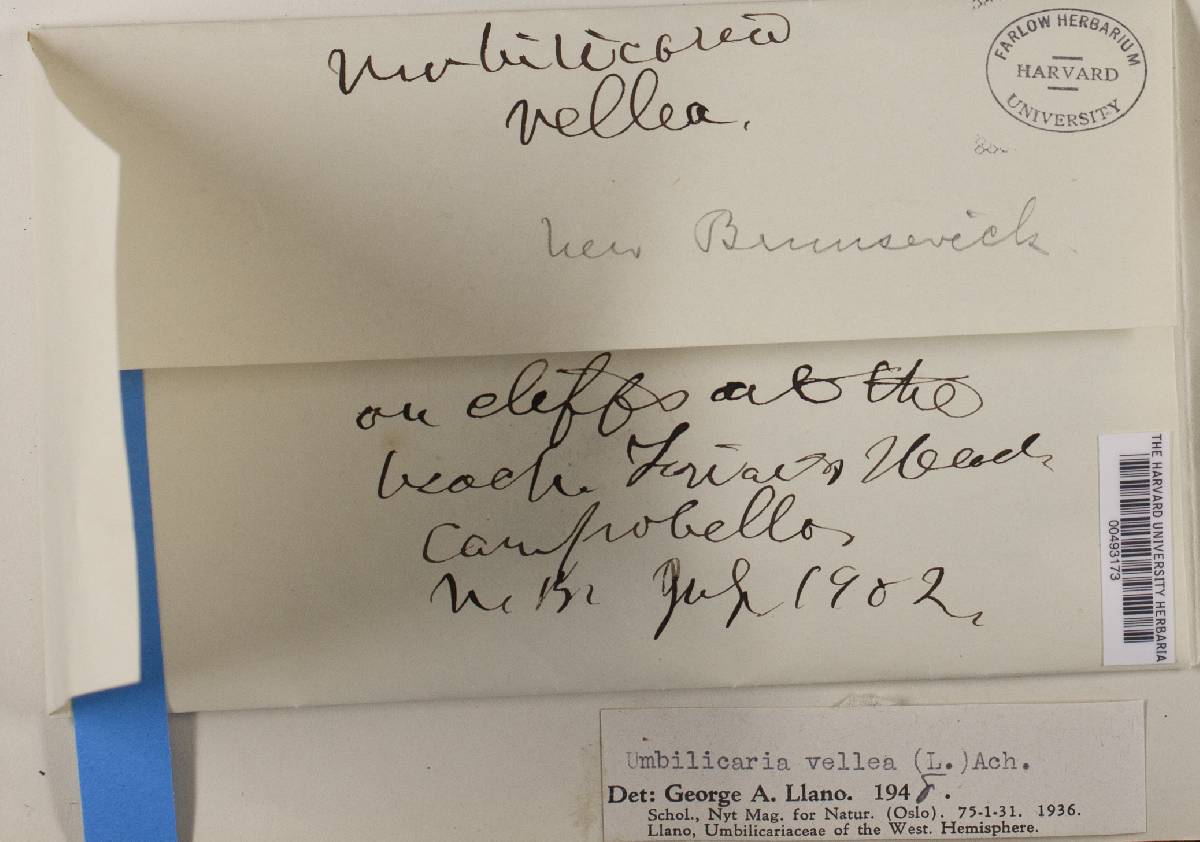 Umbilicaria
vellea.
FARLOW HERBARIUM
HARVARD
UNIVERSITY
New Brunswick.
on cliffs at the
beach. Friars Head,
Campobello,
N. Br July 1902.
THE HARVARD UNIVERSITY HERBARIA
00493173
Umbilicaria vellea (L.)Ach.
Det: George A. Llano. 1948.
Schol., Nyt Mag. for Natur. (Oslo). 75-1-31. 1936.
Llano, Umbilicariaceae of the West. Hemisphere.